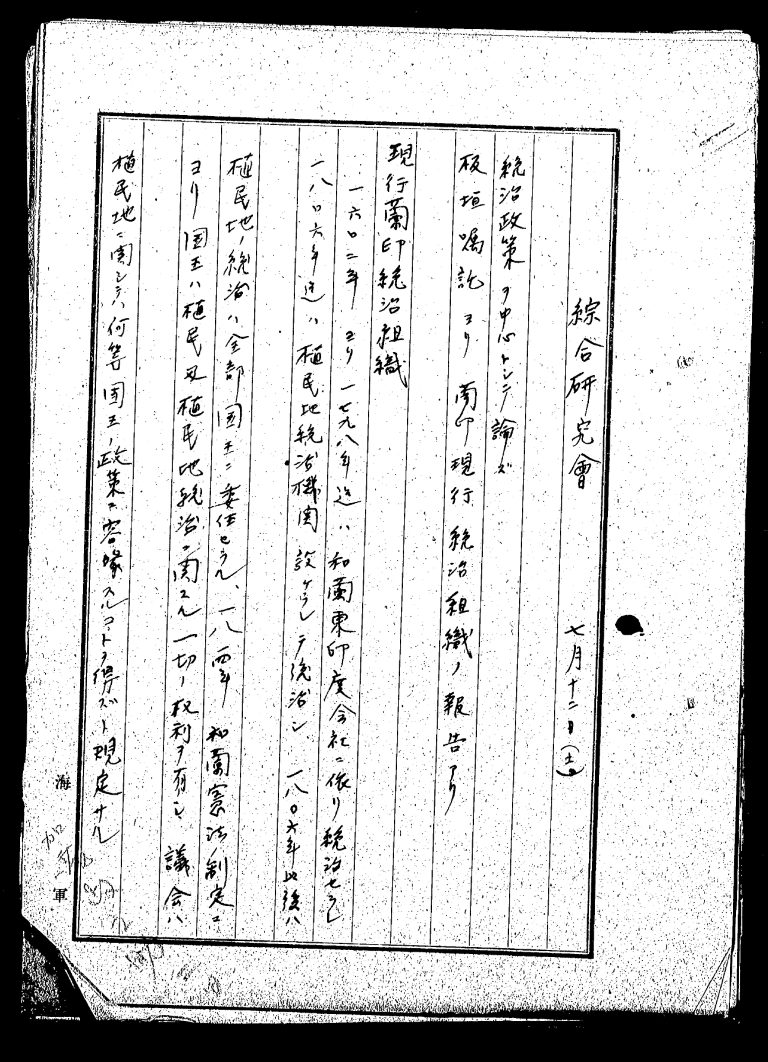 綜合研究會 七月十二日(土)
統治政策ヲ中心トシテ論ズ
板垣嘱託ヨリ 蘭印現行統治組織ノ報告アリ
現行蘭印統治組織
一六〇二年ヨリ一七九八年迄ハ和蘭東印度会社ニ依リ統治セラレ
一八〇六年迄ハ植民地統治機関設ケラレテ統治シ 一八〇六年以後ハ
植民地ノ統治ハ全部国王ニ委任セラル、一八一四年和蘭憲法ノ制定ニ
ヨリ国王ハ植民及植民地統治ニ関スル一切ノ权利ヲ有シ 議会ハ
植民地ニ関シテハ何等国王ノ政策ニ容喙スルコトヲ得ズト規定サル
海軍